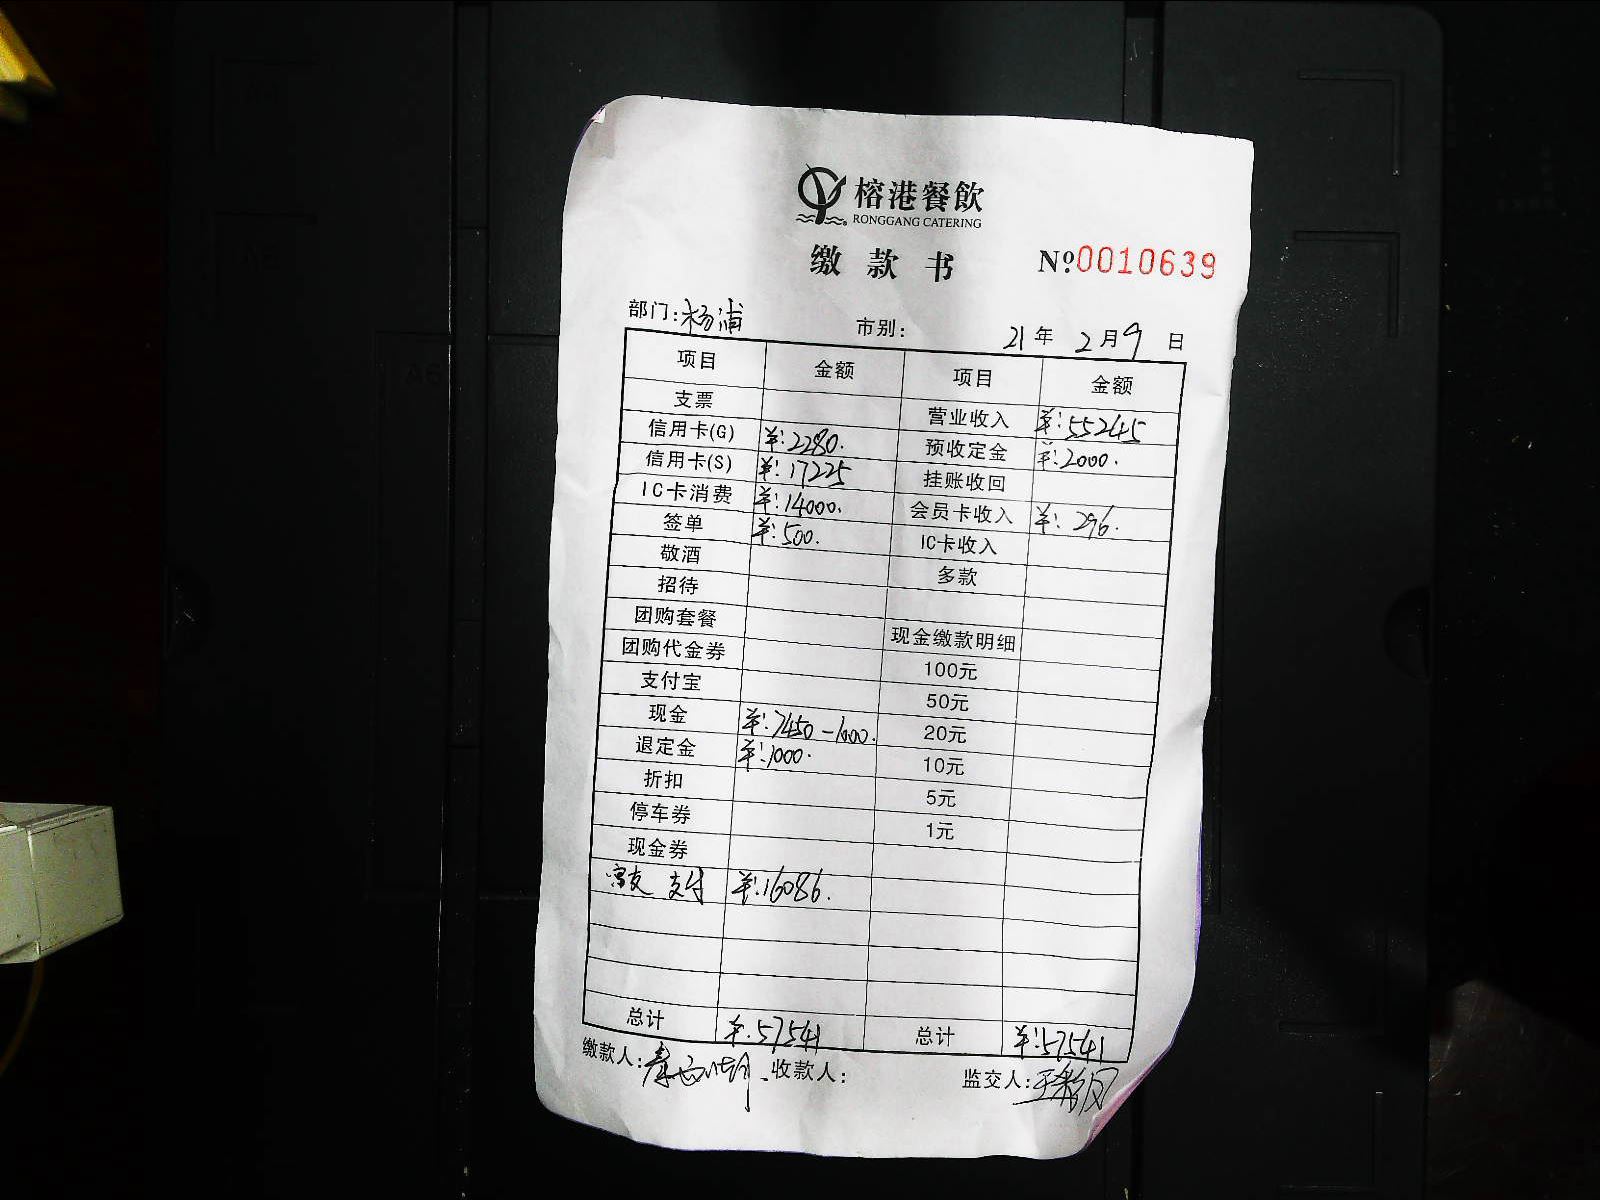 榕港餐飲
RONGGANG CATERING
缴款书 №0010639
部门:杨浦 市别: 21年 2月9日
项目 金额 项目 金额
支票 营业收入 ¥:55245
信用卡(G) ¥:2280. 预收定金 ¥:2000.
信用卡(S) ¥:17225 挂账收回
IC卡消费 ¥:14000. 会员卡收入 ¥:296.
签单 ¥:500. IC卡收入
敬酒 多款
招待
团购套餐 现金缴款明细
团购代金券 100元
支付宝 50元
现金 ¥:7450-1000. 20元
退定金 ¥:1000. 10元
折扣 5元
停车券 1元
现金券
支付 ¥:16086.
总计 ¥:57541 总计 ¥:57541
缴款人: 收款人: 监交人:
A6